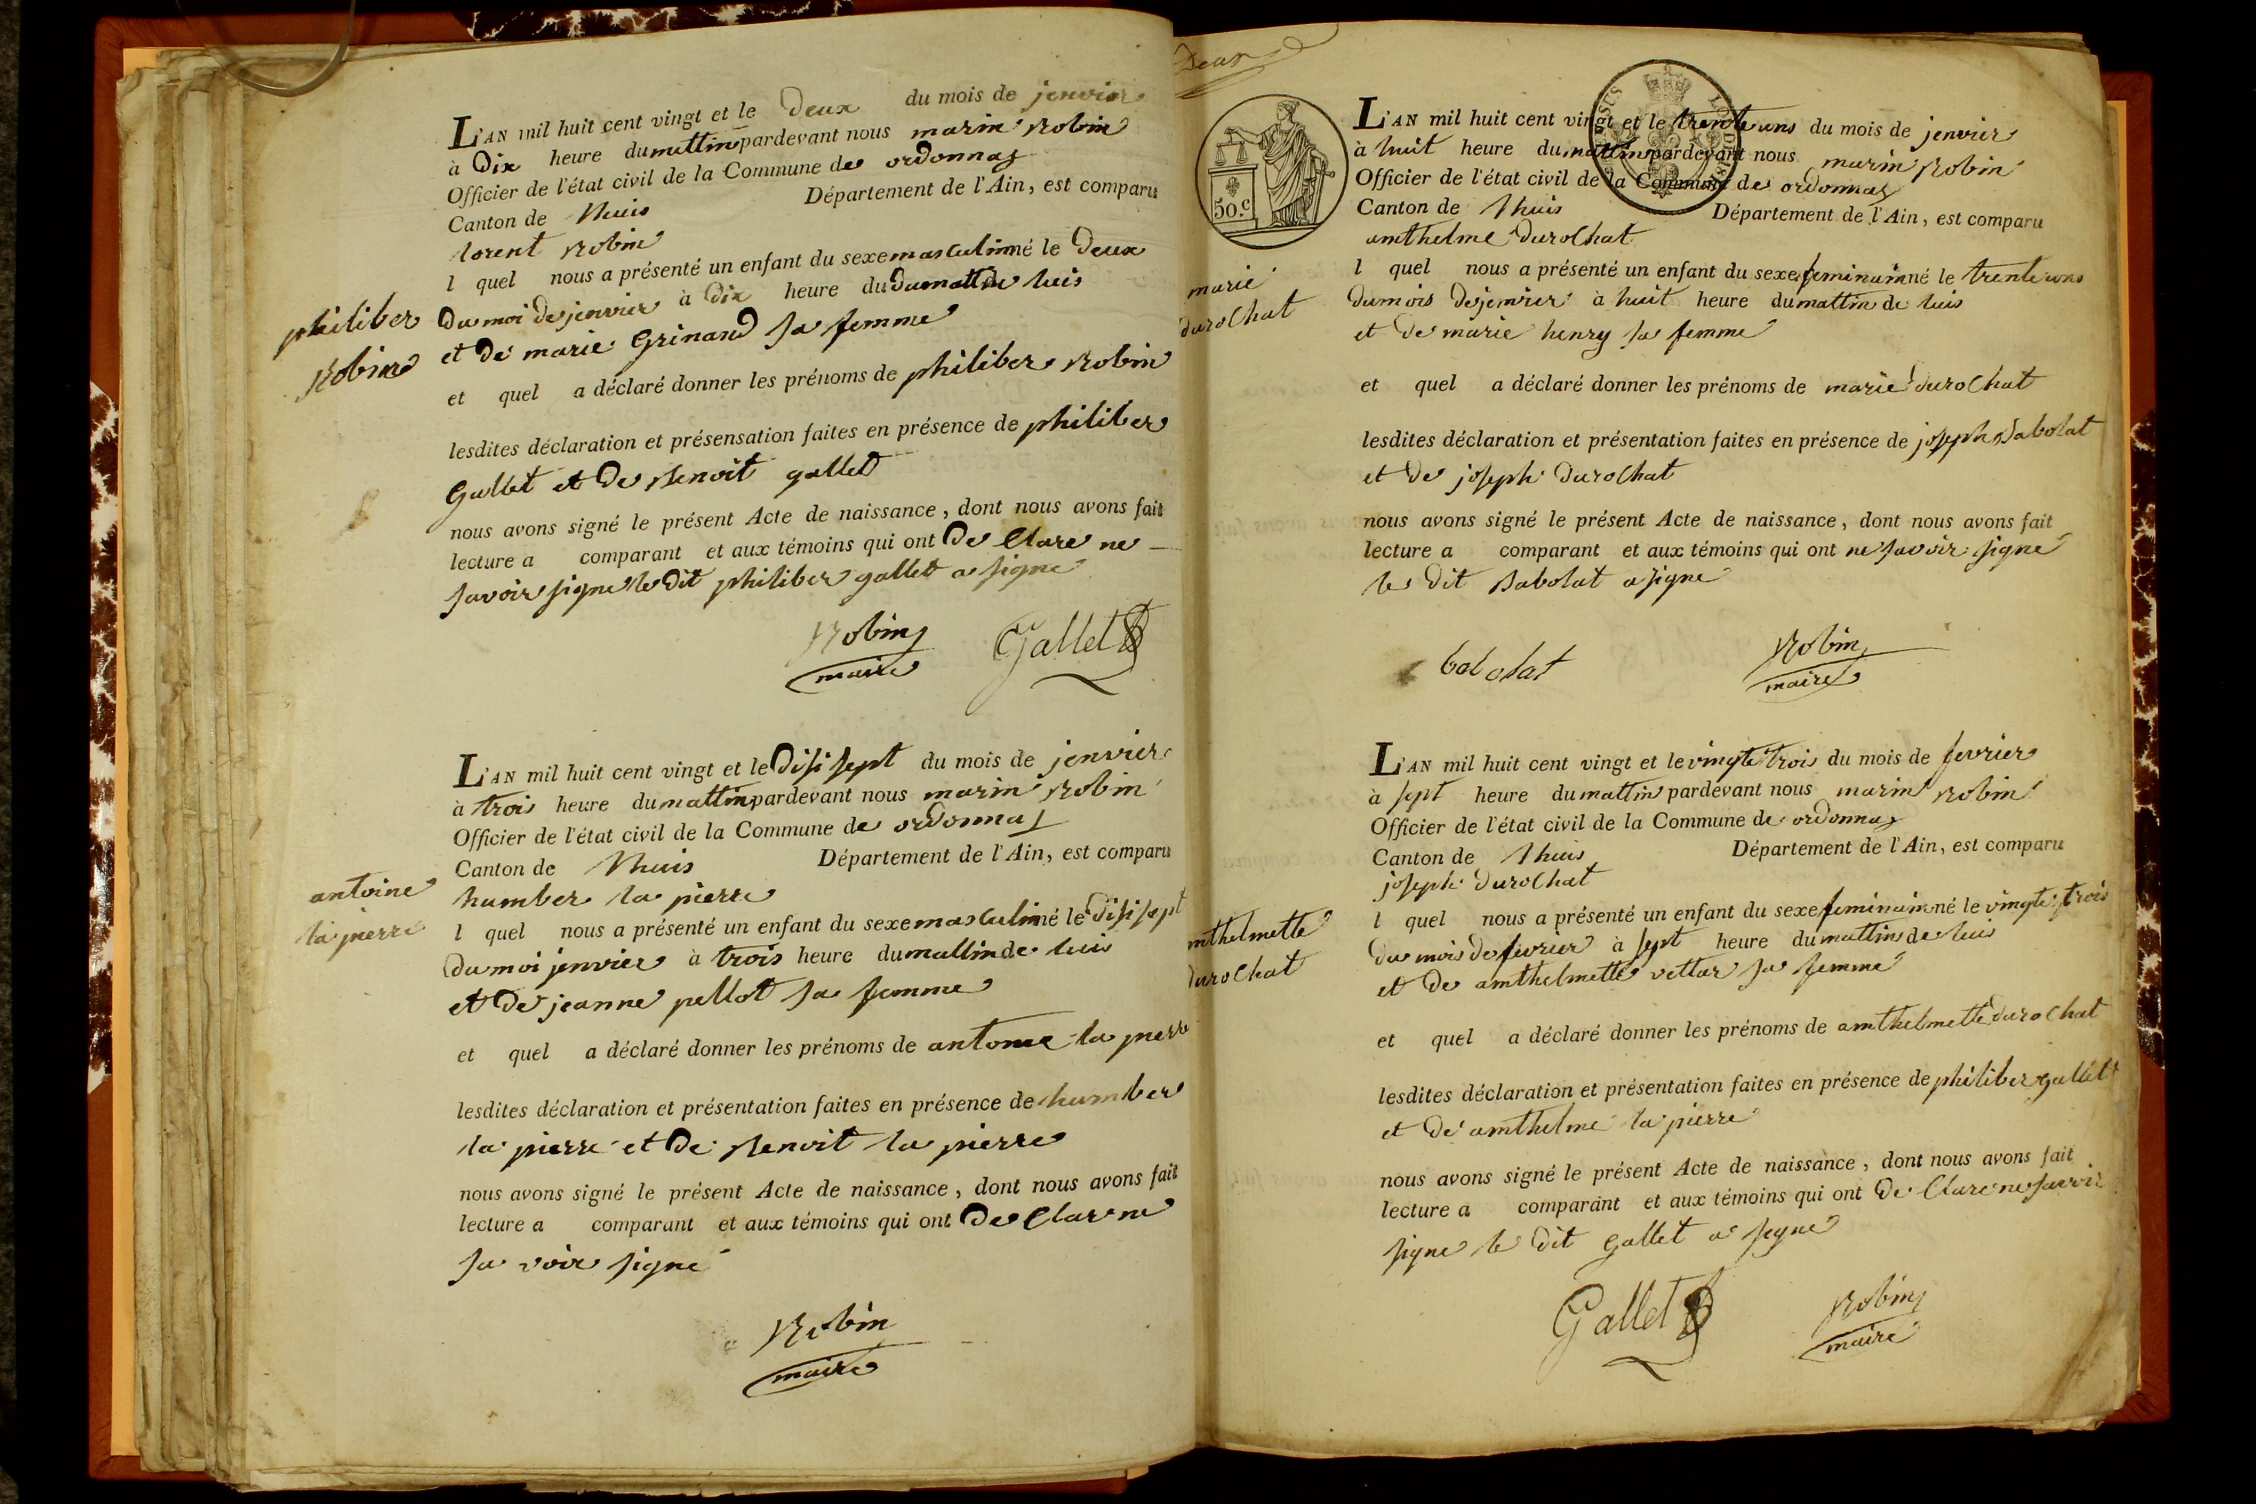 L'AN mil huit cent vingt et le deux du mois de jenvier
à Dix heure du mattin pardevant nous marin Robin
Officier de l'état civil de la Commune de ordonnas
Canton de lhuis Département de l'Ain, est comparu
lorent Robin
l quel nous a présenté un enfant du sexe masculin né le Deux
Du moi de jenvier à dix heure du Du mattin de luis
philiber
Robin
et De marie Grinand sa femme
et quel a déclaré donner les prénoms de philiber Robin
lesdites déclaration et présensation faites en présence de philiber
Gallet et De Benoit gallet
nous avons signé le présent Acte de naissance, dont nous avons fait
lecture a comparant et aux témoins qui ont De Clare ne
savoir signe le Dit philiber gallet a signe
Robin Gallet
maire
L'AN mil huit cent vingt et le Disi sept du mois de jenvier
à trois heure du mattin pardevant nous marin Robin
Officier de l'état civil de la Commune de ordonnas
Canton de lhuis Département de l'Ain, est comparu
antoine
la pierre
humber la pierre
l quel nous a présenté un enfant du sexe masculin né le Disi sept
Du moi jenvier à trois heure du mattin de luis
et De jeanne pellot sa femme
et quel a déclaré donner les prénoms de antoine la pierre
lesdites déclaration et présentation faites en présence de humber
la pierre et De Benoit la pierre
nous avons signé le présent Acte de naissance, dont nous avons fait
lecture a comparant et aux témoins qui ont De Clar ne
sa voir signe
Robin
maire
50.c
L'AN mil huit cent vingt et le trente uns du mois de jenvier
à huit heure du mattin pardevant nous marin Robin
Officier de l'état civil de la Commune de ordonnas
Canton de lhuis Département de l'Ain, est comparu
amthelme DuroChat
marie
duroChat
l quel nous a présenté un enfant du sexe feminain né le trente uns
du mois De jenvier à huit heure du mattin de luis
et De marie henry sa femme
et quel a déclaré donner les prénoms de marie DuroChat
lesdites déclaration et présentation faites en présence de joseph Babolat
et De joseph DuroChat
nous avons signé le présent Acte de naissance, dont nous avons fait
lecture a comparant et aux témoins qui ont ne savoir signe
le Dit Babolat a signe
babolat Robin
maire
L'AN mil huit cent vingt et le vingte trois du mois de fevrier
à sept heure du mattin pardevant nous marin Robin
Officier de l'état civil de la Commune de ordonnas
Canton de lhuis Département de l'Ain, est comparu
joseph DuroChat
mthelmette
duroChat
l quel nous a présenté un enfant du sexe feminain né le vingte trois
Du mois De fevrier à sept heure du mattin de luis
et De amthelmette vettar sa femme
et quel a déclaré donner les prénoms de amthelmette DuroChat
lesdites déclaration et présentation faites en présence de philiber gallet
et De amthelme la pierre
nous avons signé le présent Acte de naissance, dont nous avons fait
lecture a comparant et aux témoins qui ont De Clare ne savoir
signe le Dit gallet a signe
Gallet Robin
maire